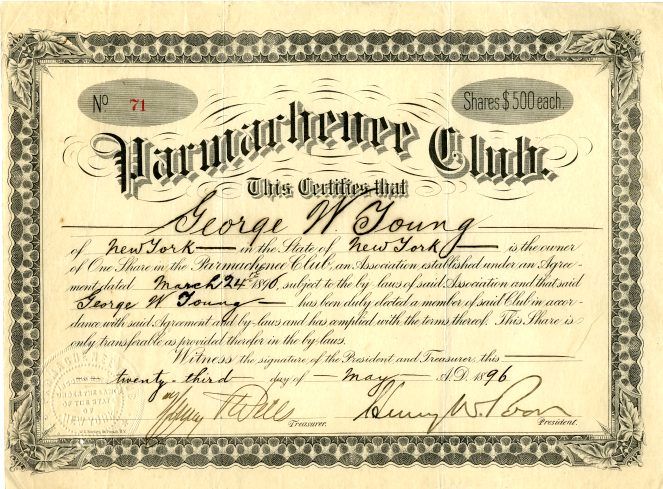 No 71
Shares $500 each.
Parmachenee Club.
This Certifies that
George W. Young
of New York in the State of New York is the owner
of One Share in the Parmachenee Club, an Association established under an Agree-
ment dated March 24th 1890, subject to the by-laws of said Association and that said
George W Young has been duly elected a member of said Club in accor-
dance with said Agreement and by-laws and has complied with the terms thereof. This Share is
only transferable as provided therefor in the by-laws.
Witness the signature of the President and Treasurer, this
twenty-third day of May A.D. 1896
Treasurer.
Henry W. Poor
President.